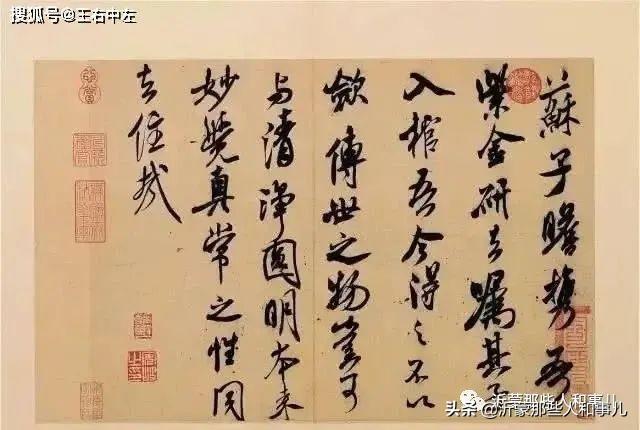 搜狐号@王右中左
蘇子瞻携吾
紫金研去嘱其子
入棺吾今得之不以
歛傳世之物豈可
与清淨圓明本来
妙覺真常之性同
去住哉
沂蒙那些人和事儿
头条@沂蒙那些人和事儿